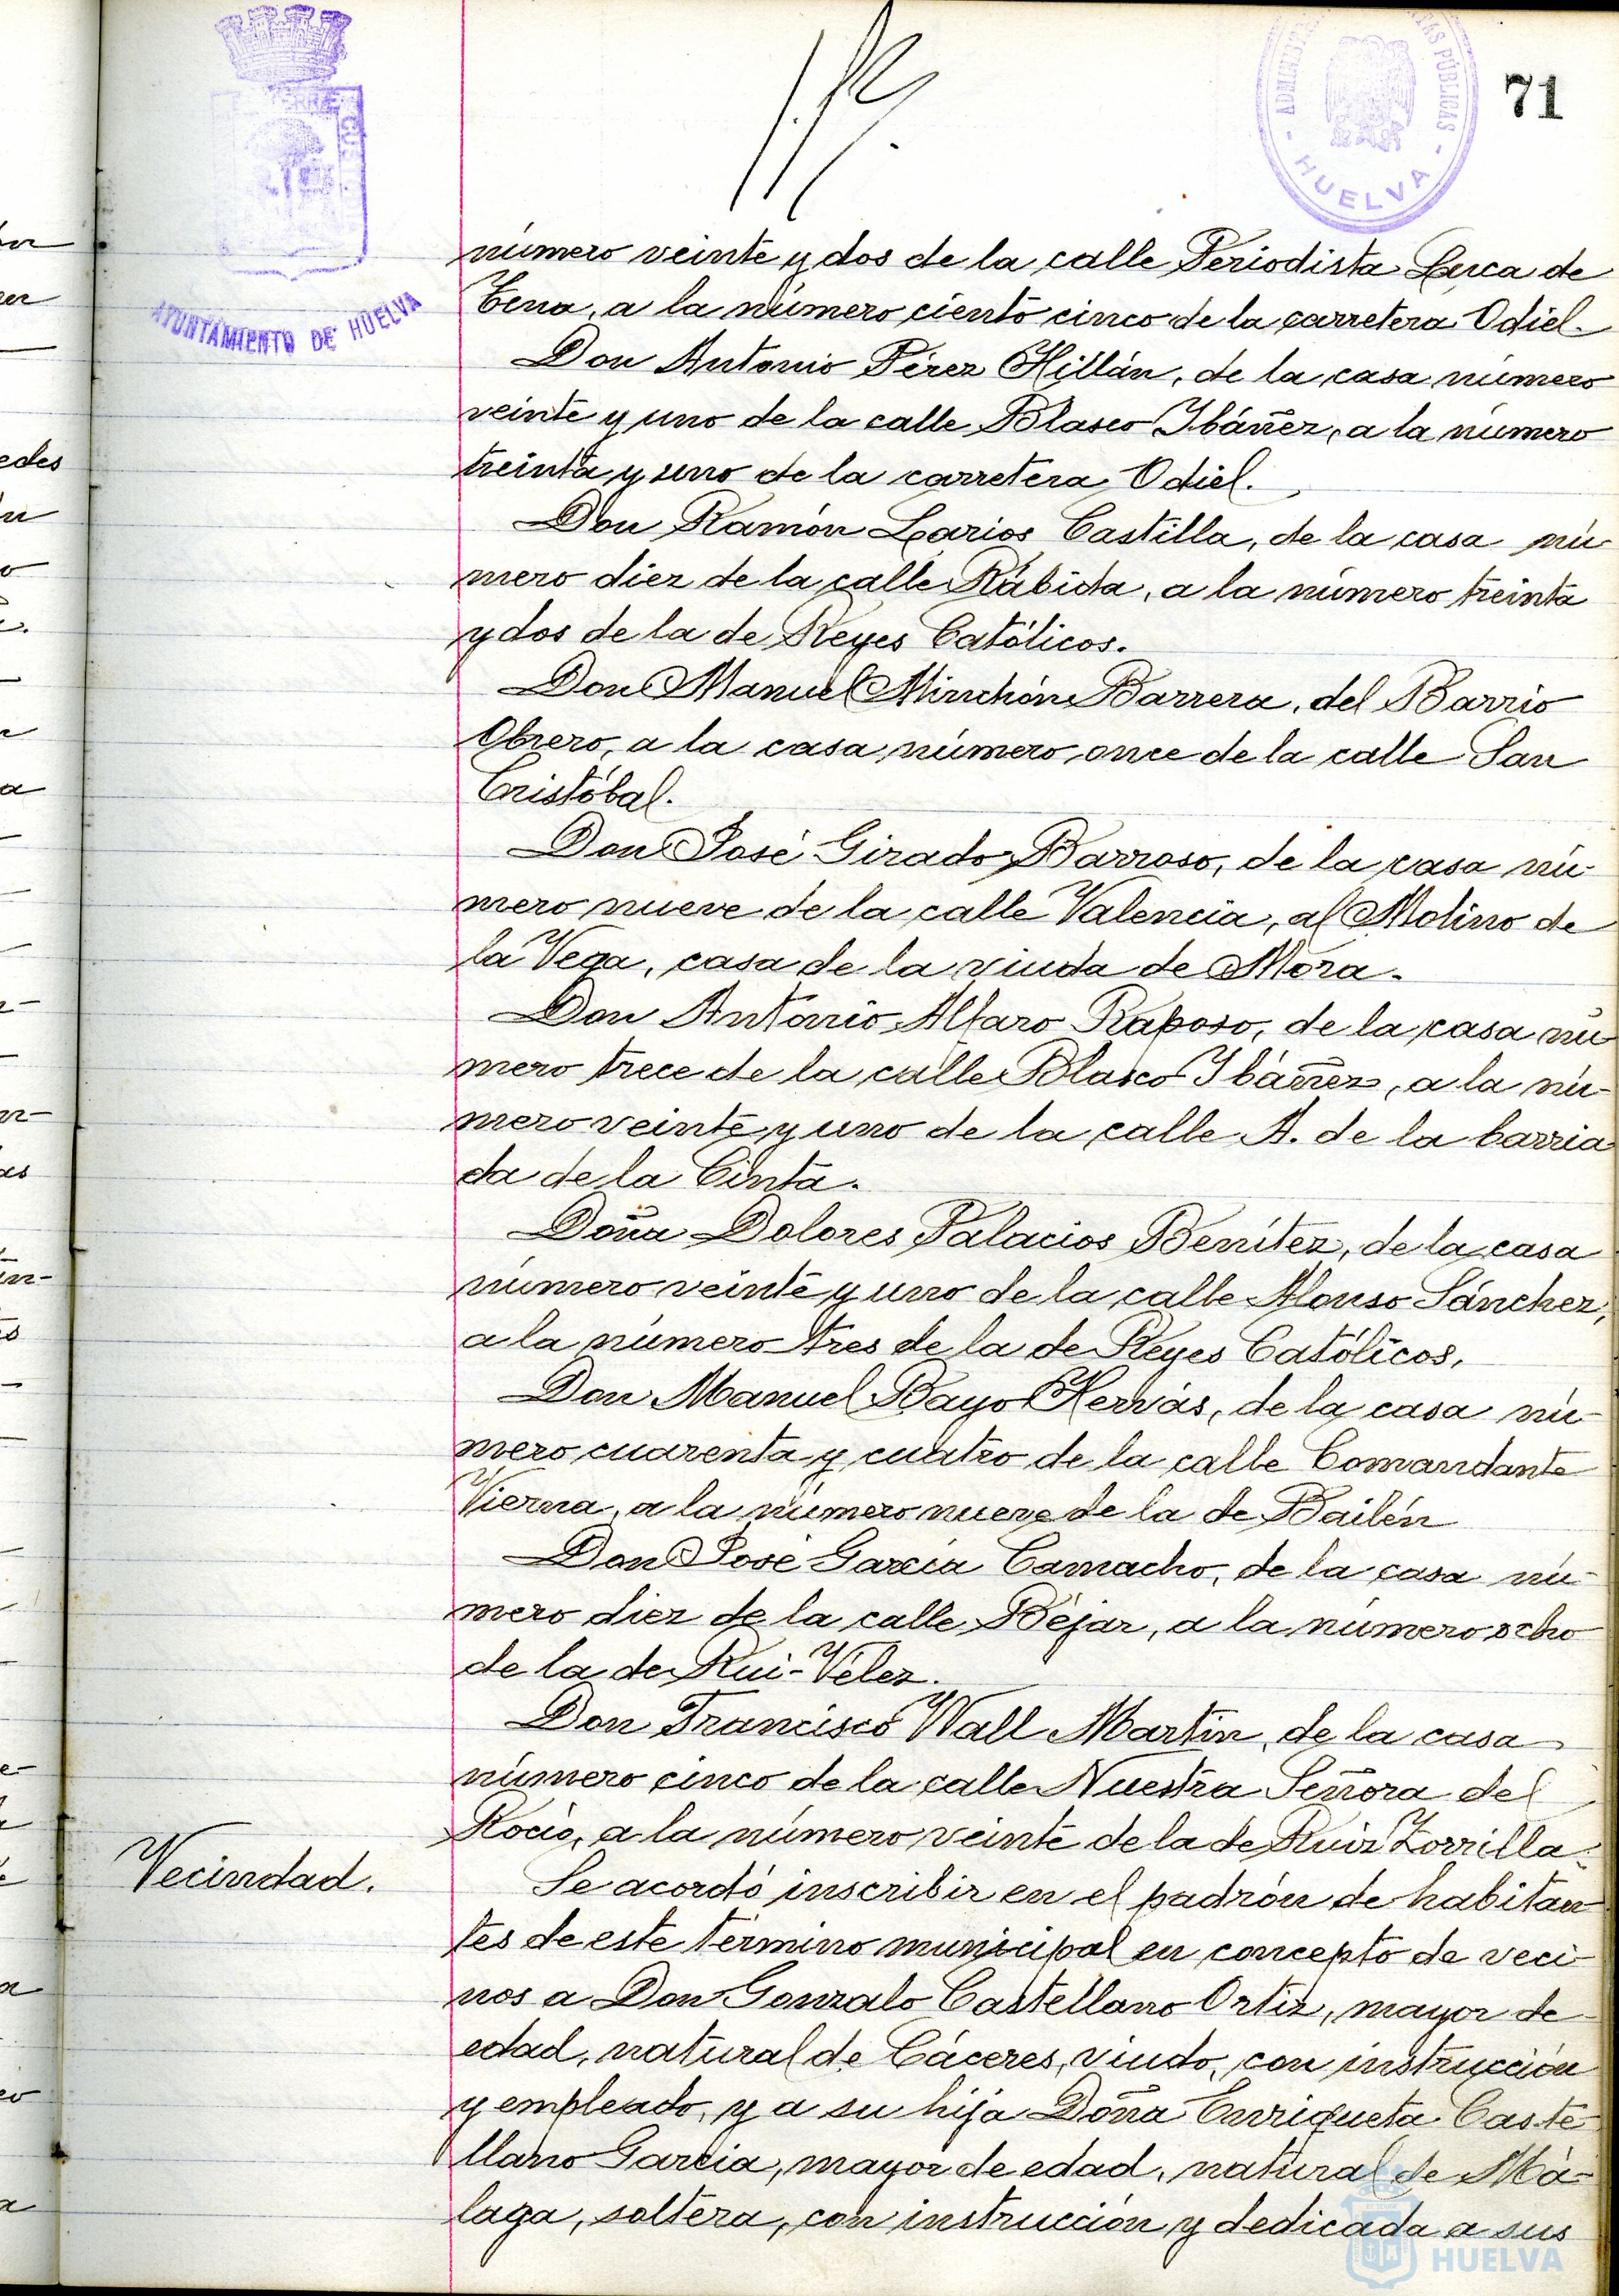 71
TERRÆ
CUS
AYUNTAMIENTO DE HUELVA
PÚBLICAS
- HUELVA -
número veinte y dos de la calle Periodista Luca de
Tena, a la número ciento cinco de la carretera Odiel.
Don Antonio Pérez Hillán, de la casa número
veinte y uno de la calle Blasco Ibáñez, a la número
treinta y uno de la carretera Odiel.
Don Ramón Larios Castilla, de la casa nú-
mero diez de la calle Rábida, a la número treinta
y dos de la de Reyes Católicos.
Don Manuel Minchón Barrera, del Barrio
Obrero, a la casa número once de la calle San
Cristóbal.
Don José Girado Barroso, de la casa nú-
mero nueve de la calle Valencia, al Molino de
la Vega, casa de la viuda de Mora.
Don Antonio Alfaro Raposo, de la casa nú
mero trece de la calle Blasco Ibáñez, a la nú-
mero veinte y uno de la calle A. de la barria
da de la Cinta.
Doña Dolores Palacios Benítez, de la casa
número veinte y uno de la calle Alonso Sánchez,
a la número tres de la de Reyes Católicos,
Don Manuel Bayo Hervás, de la casa nú-
mero cuarenta y cuatro de la calle Comandante
Vierna, a la número nueve de la de Bailén
Don José García Camacho, de la casa nú-
mero diez de la calle Béjar, a la número ocho
de la de Rui-Vélez.
Don Francisco Wall Martín, de la casa
número cinco de la calle Nuestra Señora del
Rocío, a la número veinte de la de Ruiz Zorrilla.
Vecindad.
Se acordó inscribir en el padrón de habitan
tes de este término municipal en concepto de veci-
nos a Don Gonzalo Castellano Ortiz, mayor de
edad, natural de Cáceres, viudo, con instrucción
y empleado, y a su hija Doña Enriqueta Caste-
llano García, mayor de edad, natural de Má-
laga, soltera, con instrucción y dedicada a sus
HUELVA